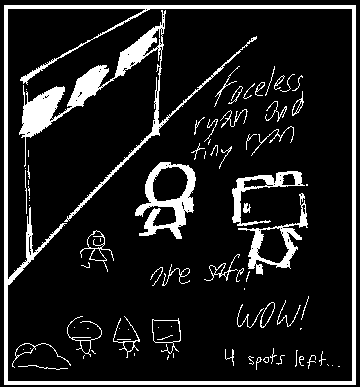 faceless
ryan and
tiny ryan
are safe!
WOW!
4 spots left...